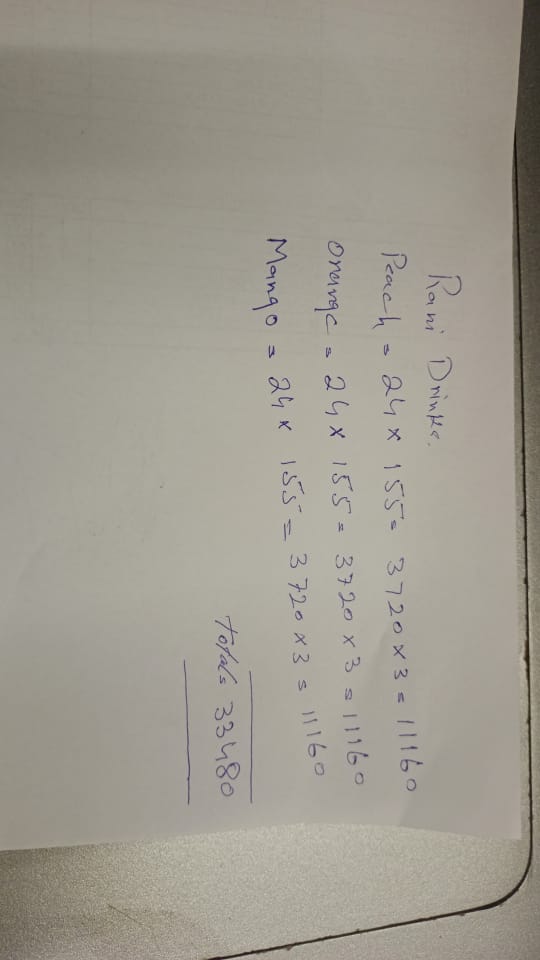 Rani Drinks.
Peach = 24 x 155 = 3720 x 3 = 11160
Orange = 24 x 155 = 3720 x 3 = 11160
Mango = 24 x 155 = 3720 x 3 = 11160
Total = 33480